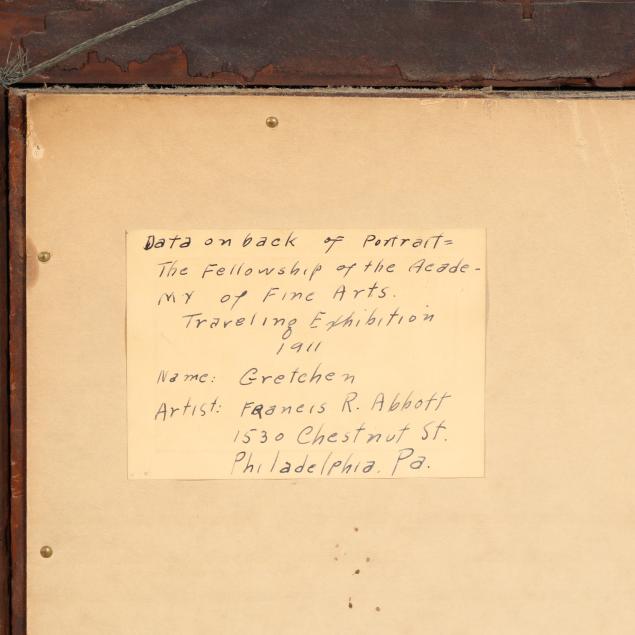 Data on back of Portrait=
The Fellowship of the Acade-
my of Fine Arts.
Traveling Exhibition
1911
Name: Gretchen
Artist: Francis R. Abbott
1530 Chestnut St.
Philadelphia. Pa.